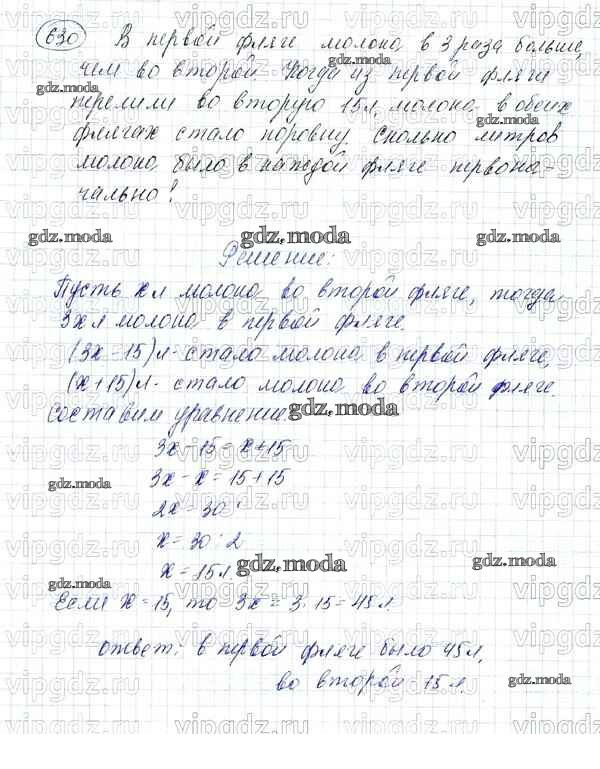 630 В первой фляге молока в 3 раза больше,
чем во второй. Когда из первой фляги
перелили во вторую 15 л молока в обеих
флягах стало поровну. Сколько литров
молока было в каждой фляге первона-
чально?
Решение:
Пусть x л молока во второй фляге, тогда
3x л молока в первой фляге.
(3x - 15) л - стало молока в первой фляге,
(x + 15) л - стало молока во второй фляге.
Составим уравнение:
3x - 15 = x + 15
3x - x = 15 + 15
2x = 30
x = 30 : 2
x = 15 л.
Если x = 15, то 3x = 3 · 15 = 45 л
Ответ: в первой фляге было 45 л,
во второй - 15 л.